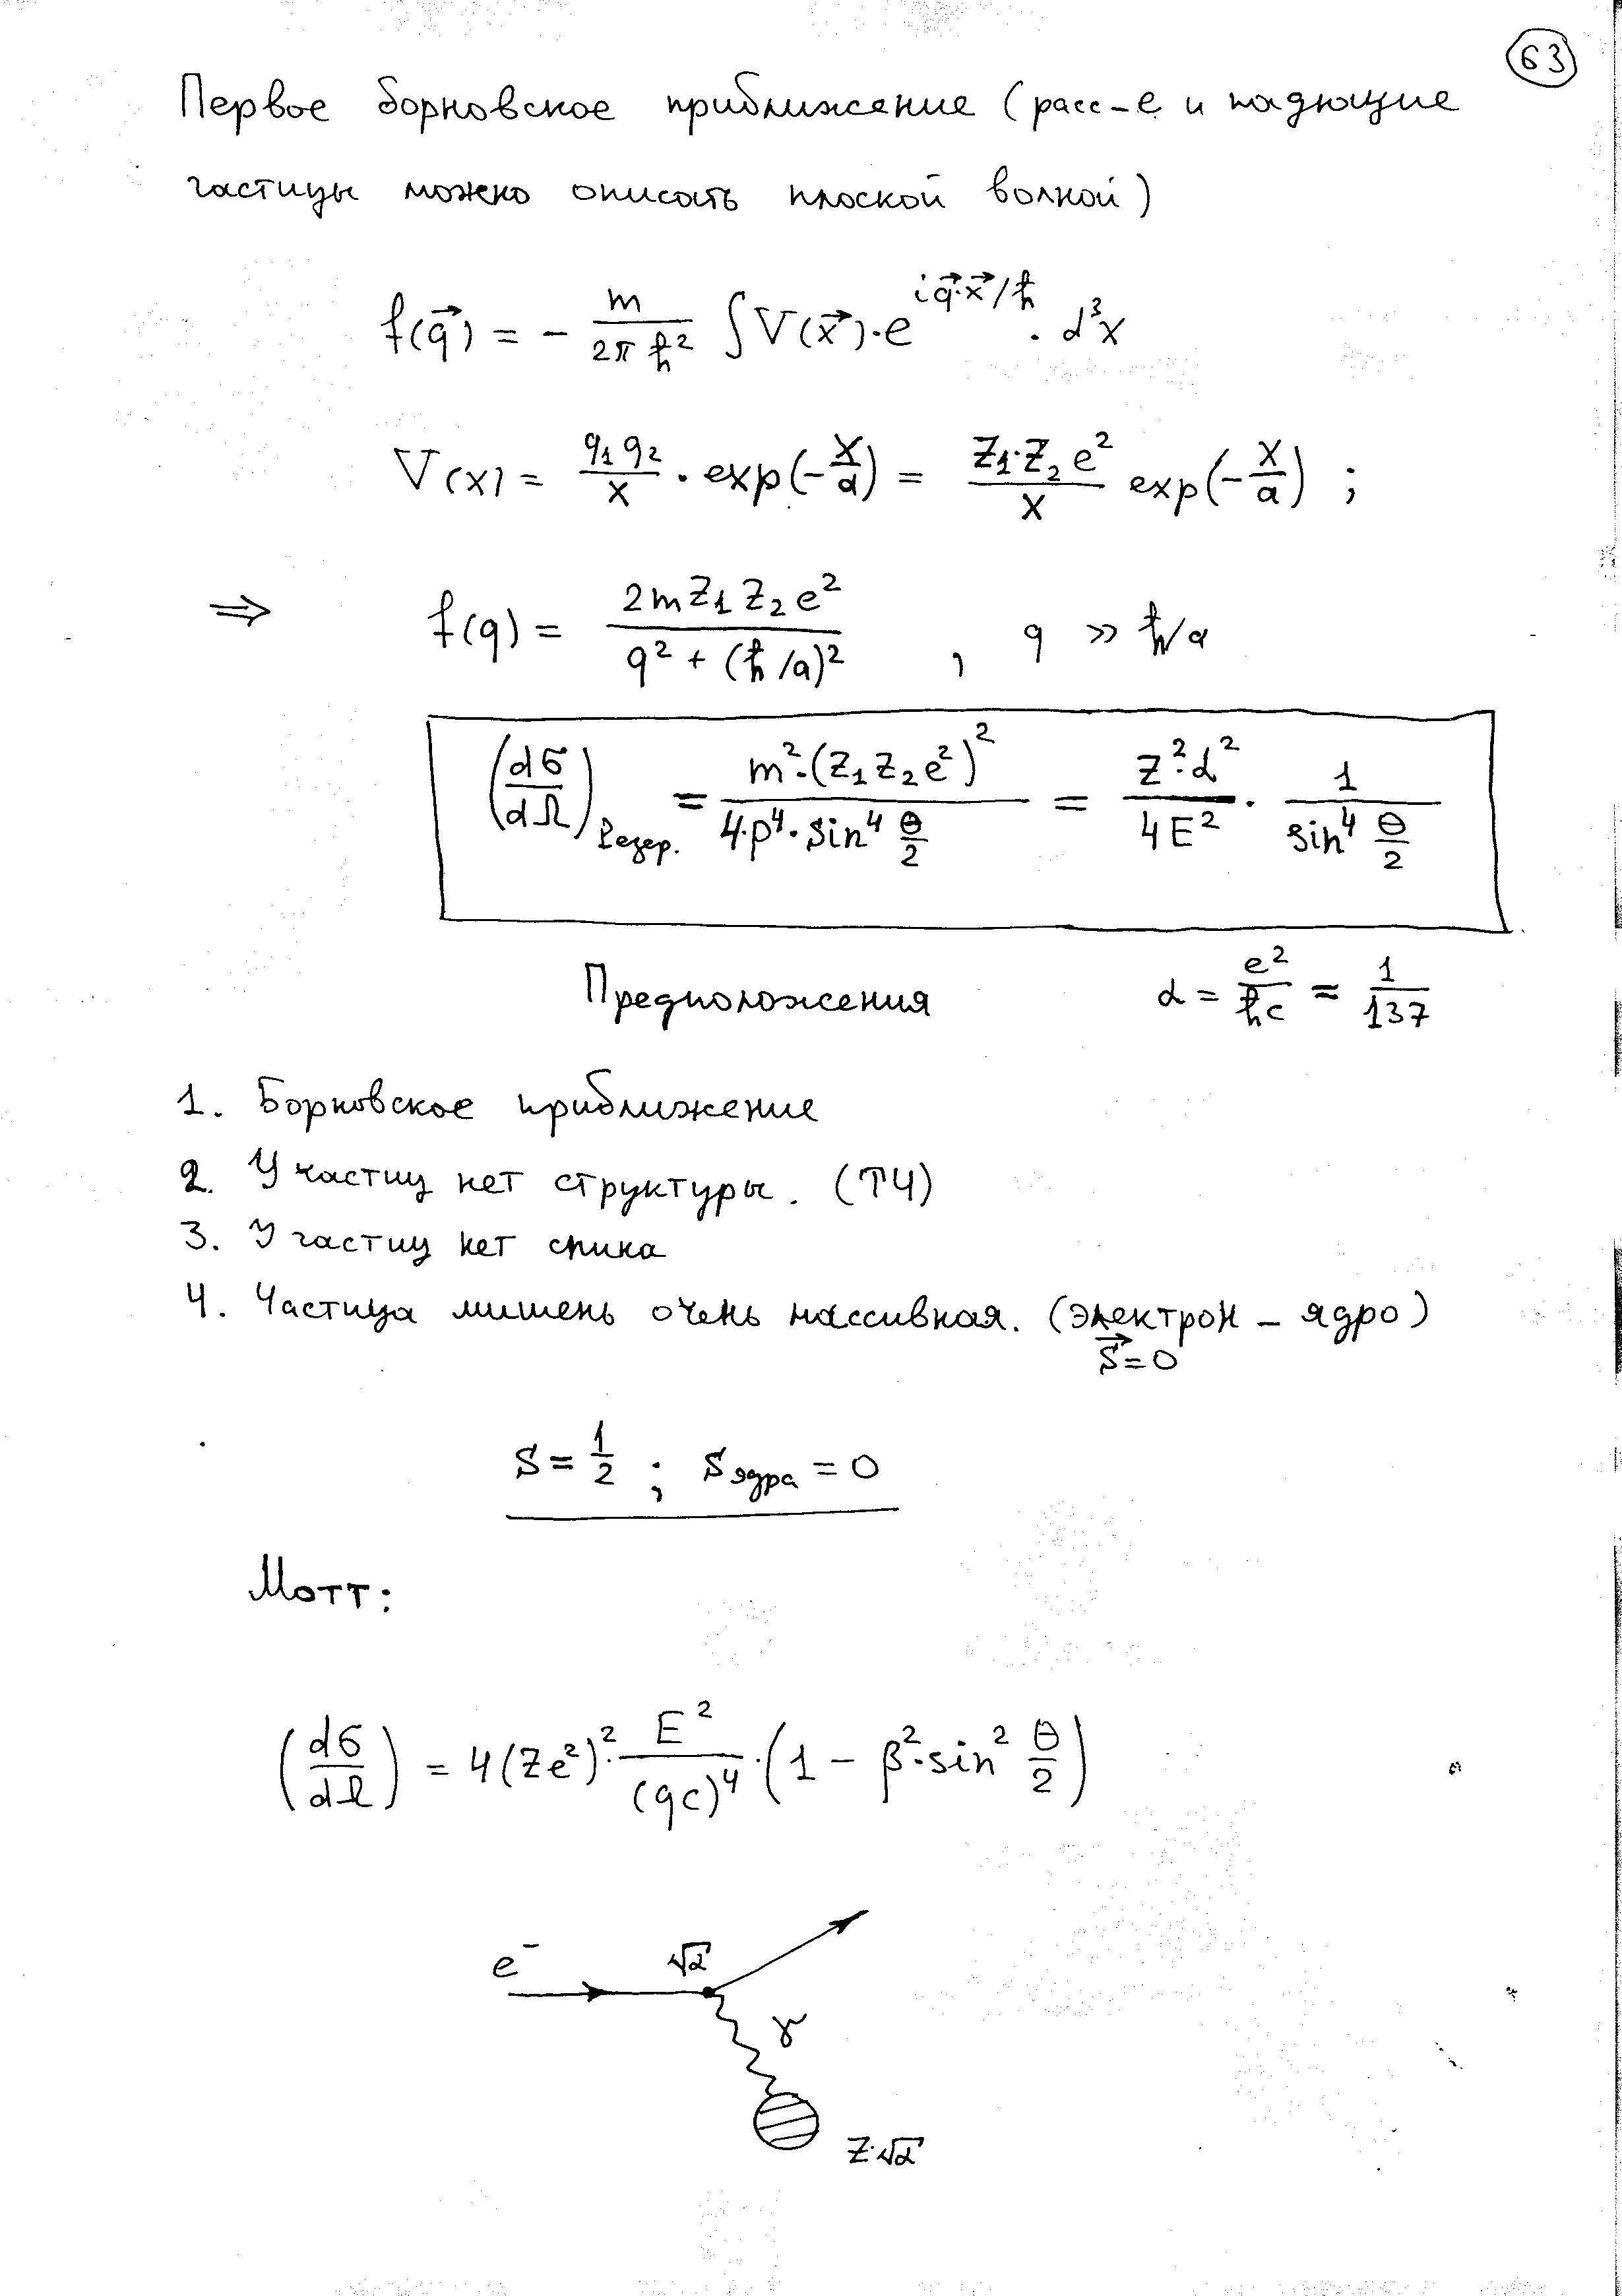 63
Первое борновское приближение (расс-е и падающие
частицы можно описать плоской волной)
f(q⃗) = - m/(2πħ²) ∫V(x⃗)·e^(iq⃗·x⃗/ħ) · d³x
V(x) = q₁q₂/x · exp(-x/a) = Z₁·Z₂e²/x exp(-x/a) ;
⇒ f(q) = 2mZ₁Z₂e²/(q² + (ħ/a)²) , q >> ħ/a
(dσ/dΩ)Резер. = m²·(Z₁Z₂e²)²/(4·p⁴·sin⁴ θ/2) = Z²·α²/4E² · 1/(sin⁴ θ/2)
Предположения α = e²/ħc = 1/137
1. Борновское приближение
2. У частиц нет структуры. (ТЧ)
3. У частиц нет спина
4. Частица мишень очень массивная. (электрон – ядро)
S⃗=0
S = 1/2 ; Sядра = 0
Мотт:
(dσ/dΩ) = 4(Ze²)²· E²/(qc)⁴ ·(1 - β²·sin² θ/2)
e⁻ √α
γ
Z·√α